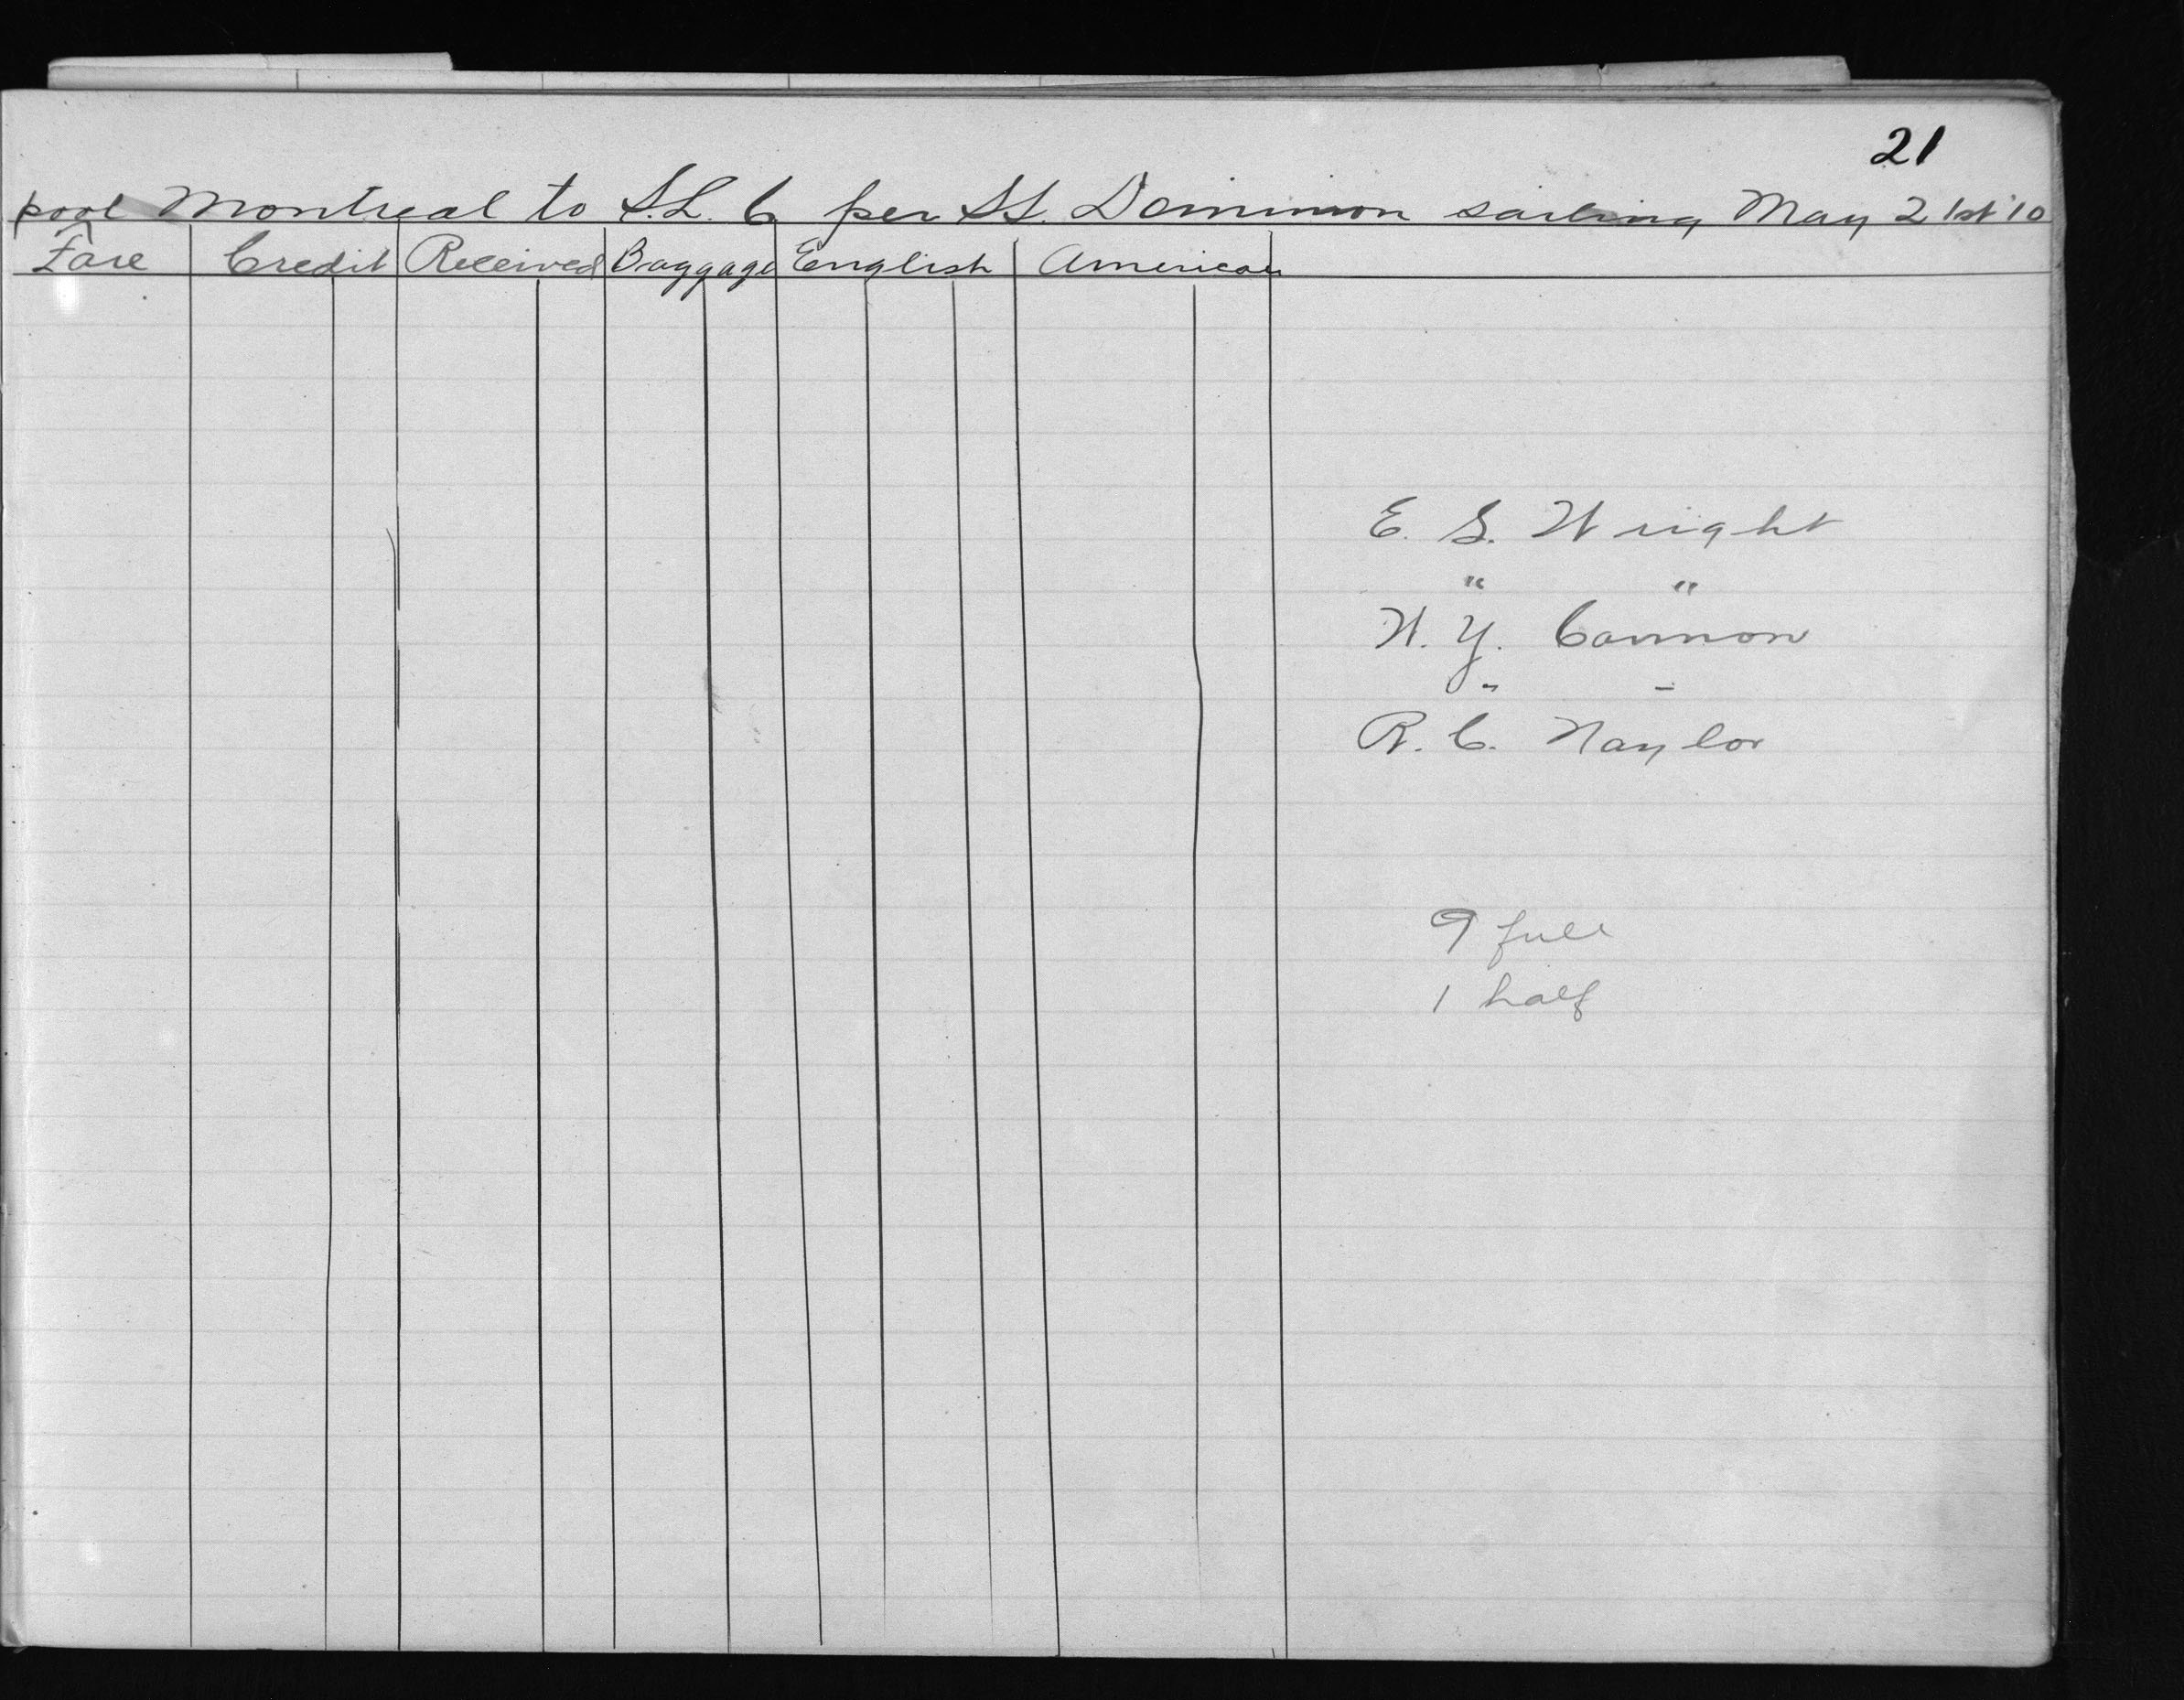 21
pool Montreal to S.L.C. per SS. Dominion sailing May 21st '10
Fare Credit Received Baggage English American
E. S. Wright
" "
W. Y. Cannon
" "
R. C. Naylor
9 full
1 half